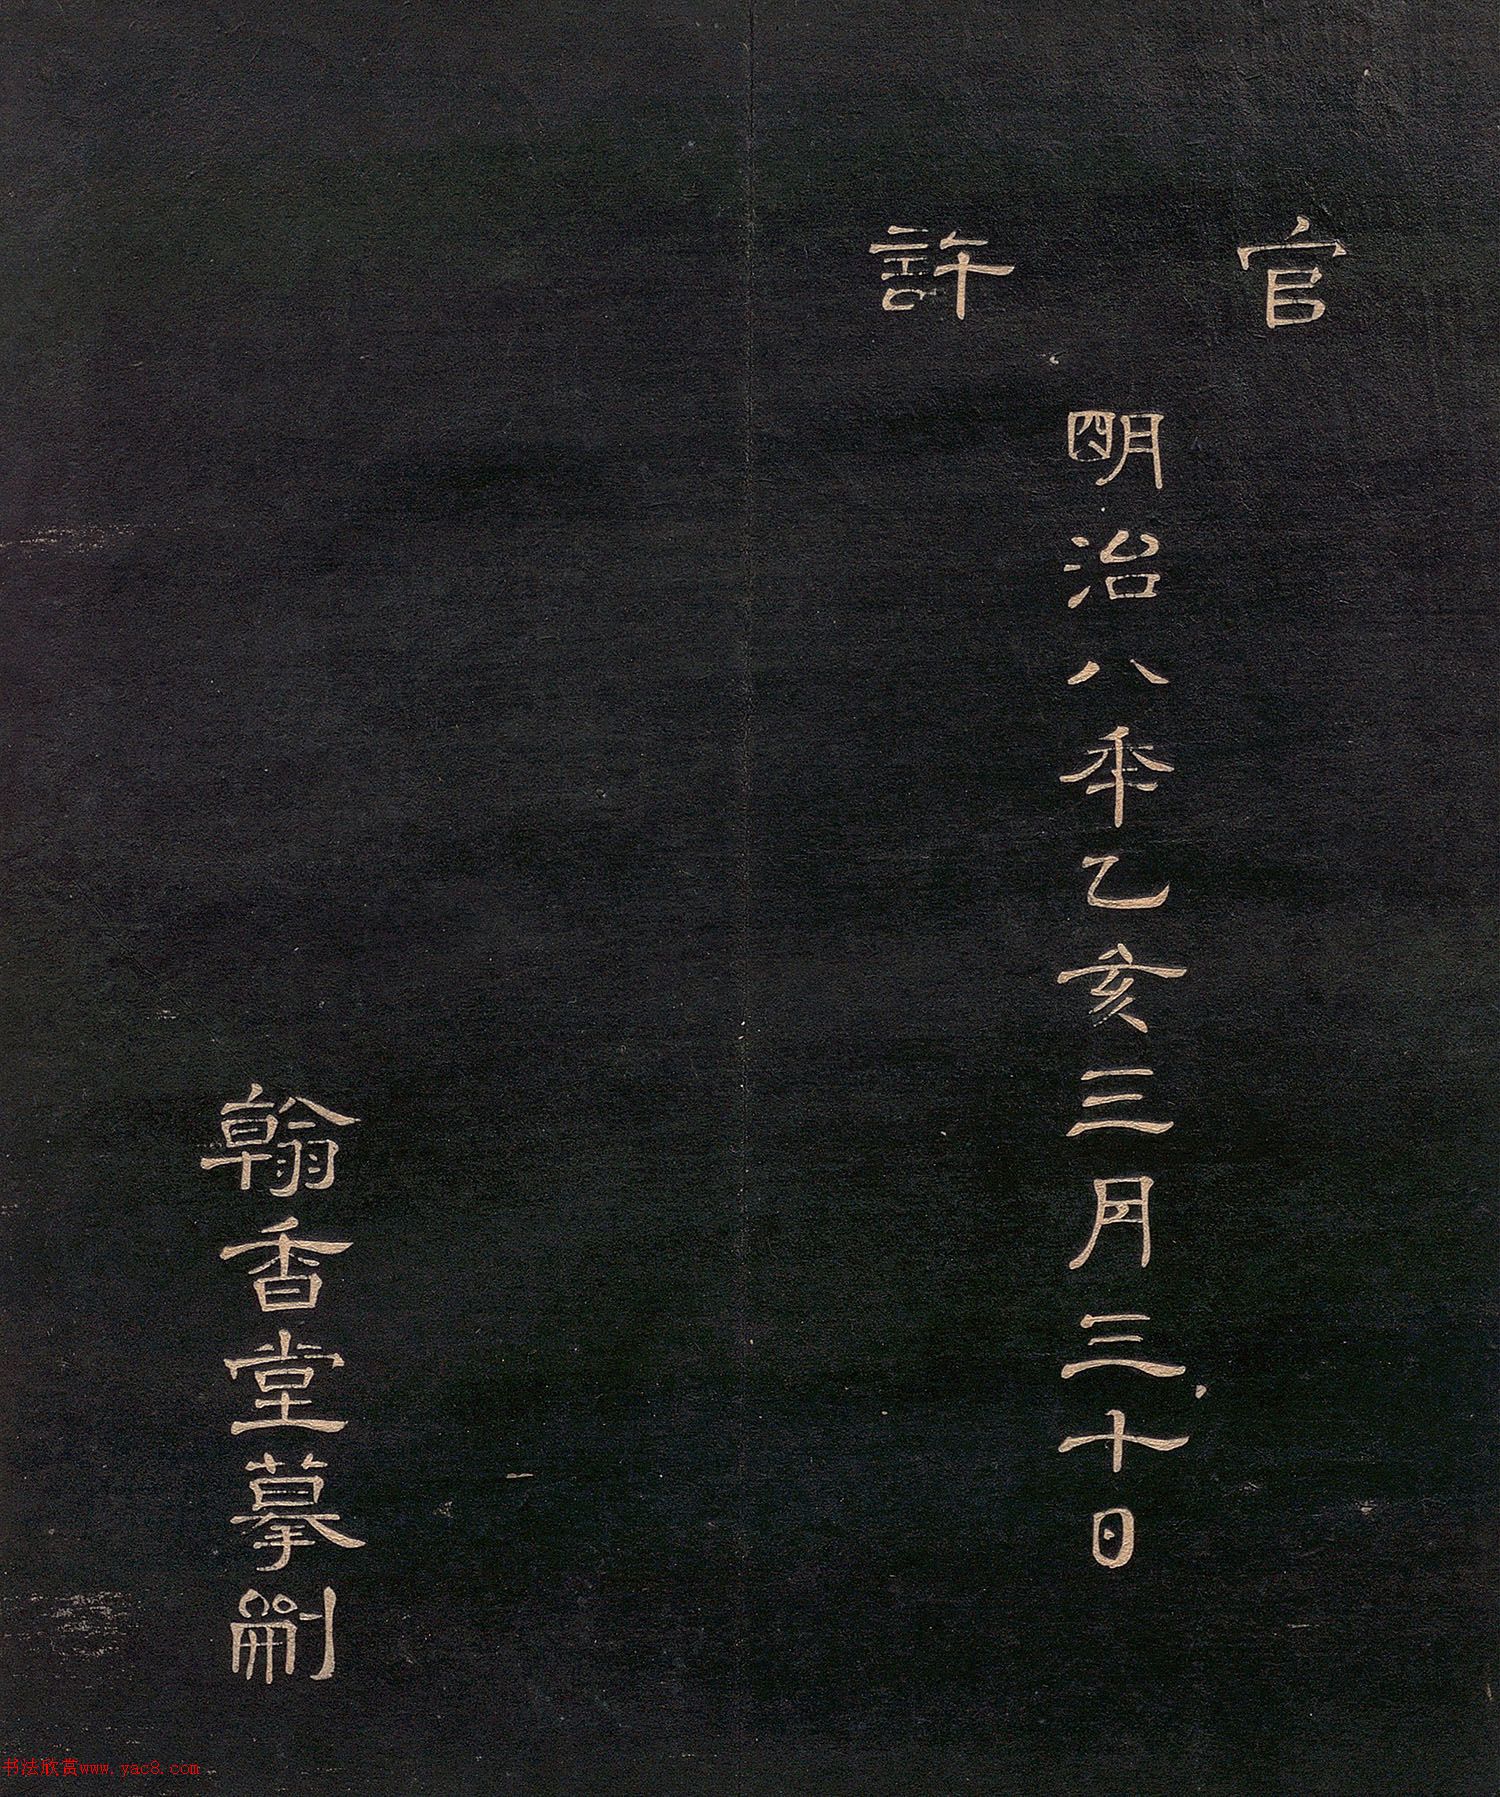 官許
明治八年乙亥三月三十日
翰香堂摹刪
书法欣赏www.yac8.com